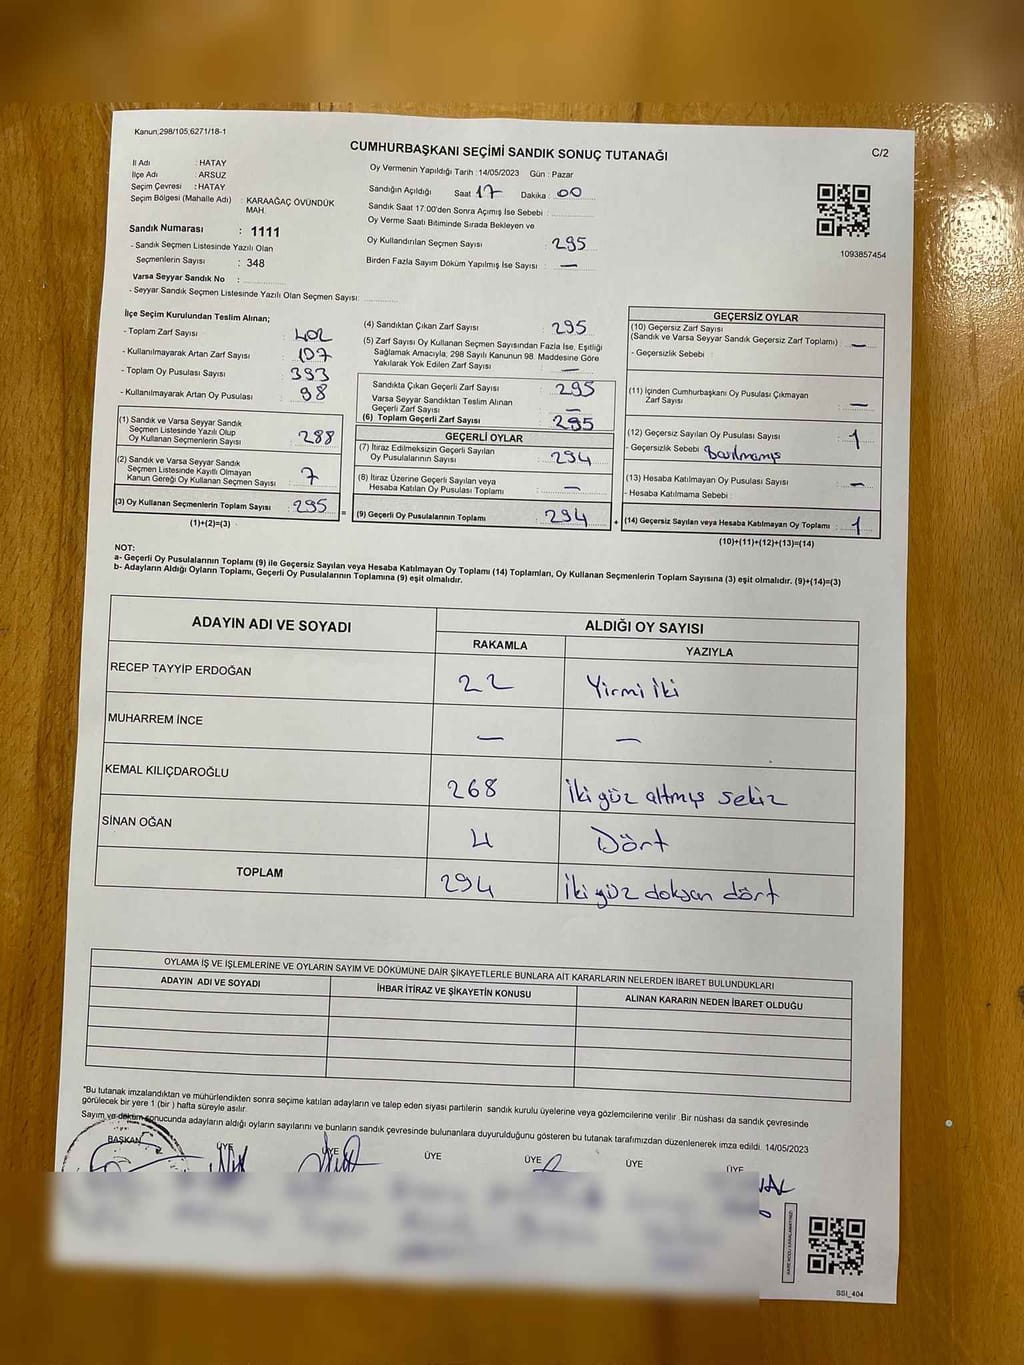 Kanun;298/105,6271/18-1
CUMHURBAŞKANI SEÇİMİ SANDIK SONUÇ TUTANAĞI
C/2
İl Adı : HATAY
İlçe Adı : ARSUZ
Seçim Çevresi : HATAY
Seçim Bölgesi (Mahalle Adı) : KARAAĞAÇ ÖVÜNDÜK
MAH.
Sandık Numarası : 1111
- Sandık Seçmen Listesinde Yazılı Olan
Seçmenlerin Sayısı : 348
Varsa Seyyar Sandık No :
- Seyyar Sandık Seçmen Listesinde Yazılı Olan Seçmen Sayısı:
Oy Vermenin Yapıldığı Tarih : 14/05/2023 Gün : Pazar
Sandığın Açıldığı Saat 17 Dakika : 00
Sandık Saat 17:00'den Sonra Açımış İse Sebebi :
Oy Verme Saati Bitiminde Sırada Bekleyen ve
Oy Kullandırılan Seçmen Sayısı : 295
Birden Fazla Sayım Döküm Yapılmış İse Sayısı : —
1093857454
İlçe Seçim Kurulundan Teslim Alınan;
- Toplam Zarf Sayısı : 402
- Kullanılmayarak Artan Zarf Sayısı : 107
- Toplam Oy Pusulası Sayısı : 393
- Kullanılmayarak Artan Oy Pusulası : 98
(1) Sandık ve Varsa Seyyar Sandık
Seçmen Listesinde Yazılı Olup
Oy Kullanan Seçmenlerin Sayısı : 288
(2) Sandık ve Varsa Seyyar Sandık
Seçmen Listesinde Kayıtlı Olmayan
Kanun Gereği Oy Kullanan Seçmen Sayısı : 7
(3) Oy Kullanan Seçmenlerin Toplam Sayısı : 295 =
(1)+(2)=(3)
(4) Sandıktan Çıkan Zarf Sayısı : 295
(5) Zarf Sayısı Oy Kullanan Seçmen Sayısından Fazla İse, Eşitliği
Sağlamak Amacıyla, 298 Sayılı Kanunun 98. Maddesine Göre
Yakılarak Yok Edilen Zarf Sayısı : —
Sandıkta Çıkan Geçerli Zarf Sayısı : 295
Varsa Seyyar Sandıktan Teslim Alınan
Geçerli Zarf Sayısı : —
(6) Toplam Geçerli Zarf Sayısı : 295
GEÇERLİ OYLAR
(7) İtiraz Edilmeksizin Geçerli Sayılan
Oy Pusulalarının Sayısı : 294
(8) İtiraz Üzerine Geçerli Sayılan veya
Hesaba Katılan Oy Pusulası Toplamı : —
(9) Geçerli Oy Pusulalarının Toplamı : 294 +
GEÇERSİZ OYLAR
(10) Geçersiz Zarf Sayısı
(Sandık ve Varsa Seyyar Sandık Geçersiz Zarf Toplamı) : —
- Geçersizlik Sebebi :
(11) İçinden Cumhurbaşkanı Oy Pusulası Çıkmayan
Zarf Sayısı : —
(12) Geçersiz Sayılan Oy Pusulası Sayısı : 1
- Geçersizlik Sebebi : Basılmamış
(13) Hesaba Katılmayan Oy Pusulası Sayısı : —
- Hesaba Katılmama Sebebi :
(14) Geçersiz Sayılan veya Hesaba Katılmayan Oy Toplamı : 1
(10)+(11)+(12)+(13)=(14)
NOT:
a- Geçerli Oy Pusulalarının Toplamı (9) ile Geçersiz Sayılan veya Hesaba Katılmayan Oy Toplamı (14) Toplamları, Oy Kullanan Seçmenlerin Toplam Sayısına (3) eşit olmalıdır. (9)+(14)=(3)
b- Adayların Aldığı Oyların Toplamı, Geçerli Oy Pusulalarının Toplamına (9) eşit olmalıdır.
ADAYIN ADI VE SOYADI ALDIĞI OY SAYISI
RAKAMLA YAZIYLA
RECEP TAYYİP ERDOĞAN 22 Yirmi iki
MUHARREM İNCE — —
KEMAL KILIÇDAROĞLU 268 İki yüz altmış sekiz
SİNAN OĞAN 4 Dört
TOPLAM 294 İki yüz doksan dört
OYLAMA İŞ VE İŞLEMLERİNE VE OYLARIN SAYIM VE DÖKÜMÜNE DAİR ŞİKAYETLERLE BUNLARA AİT KARARLARIN NELERDEN İBARET BULUNDUKLARI
ADAYIN ADI VE SOYADI İHBAR İTİRAZ VE ŞİKAYETİN KONUSU ALINAN KARARIN NEDEN İBARET OLDUĞU
"Bu tutanak imzalandıktan ve mühürlendikten sonra seçime katılan adayların ve talep eden siyasi partilerin sandık kurulu üyelerine veya gözlemcilerine verilir .Bir nüshası da sandık çevresinde
görülecek bir yere 1 (bir ) hafta süreyle asılır.
Sayım ve döküm sonucunda adayların aldığı oyların sayılarını ve bunların sandık çevresinde bulunanlara duyurulduğunu gösteren bu tutanak tarafımızdan düzenlenerek imza edildi. 14/05/2023
BAŞKAN ÜYE ÜYE ÜYE ÜYE ÜYE ÜYE
SSI_404